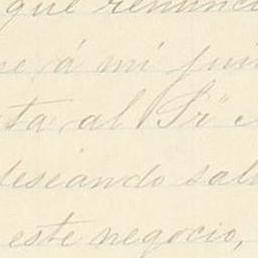 que renunci
á mi jui
ta al Sr
deseando sal
este negocio,